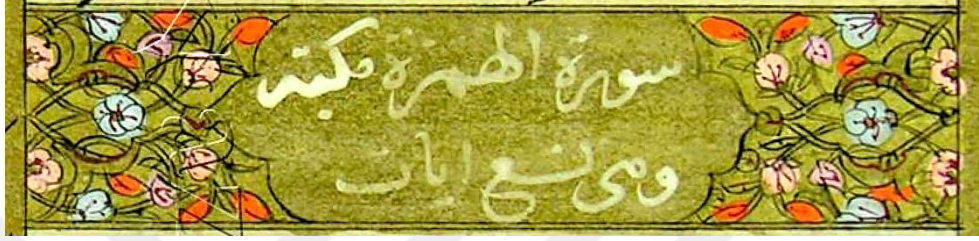 سورة الهمزة مكية
وهى تسع ايات